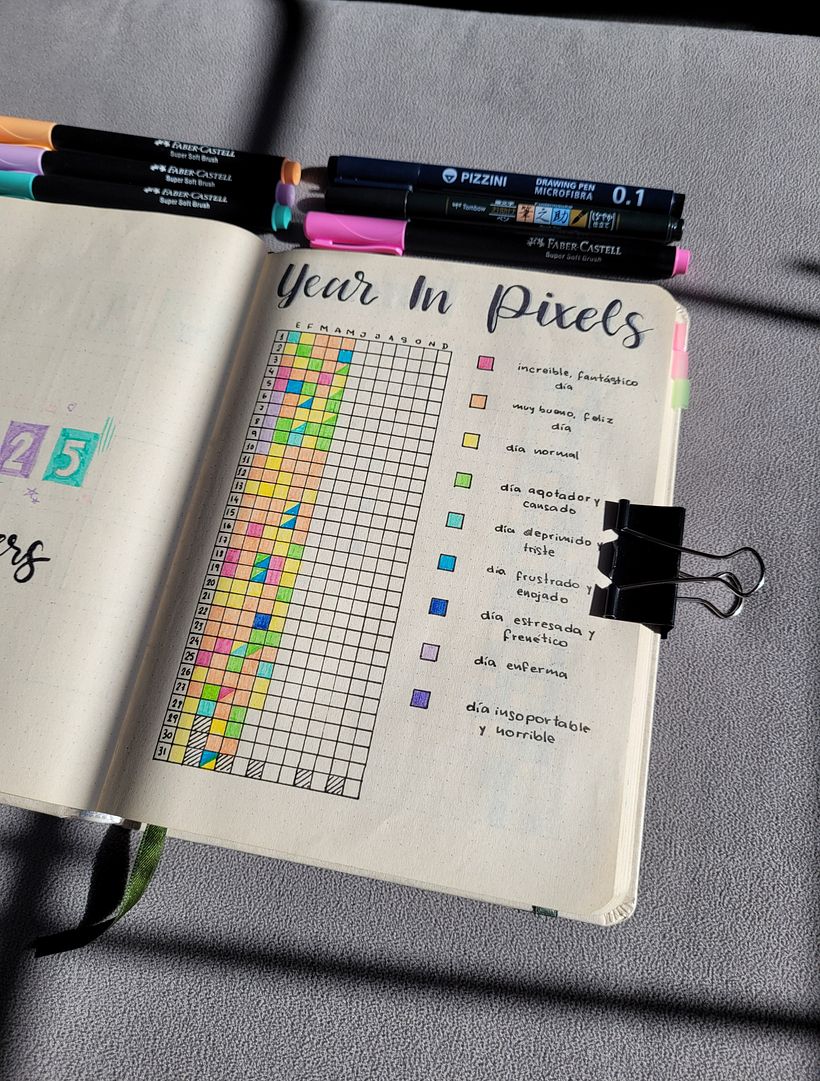 FABER-CASTELL
Super Soft Brush
FABER-CASTELL
Super Soft Brush
FABER-CASTELL
Super Soft Brush
PIZZINI
DRAWING PEN
MICROFIBRA
0.1
Tombow
筆之助
FABER-CASTELL
Super Soft Brush
25
ers
Year In Pixels
E F M A M J J A S O N D
1
2
3
4
5
6
7
8
9
10
11
12
13
14
15
16
17
18
19
20
21
22
23
24
25
26
27
28
29
30
31
increible, fantástico
día
muy bueno, feliz
día
día normal
día agotador y
cansado
día deprimido y
triste
día frustrado y
enojado
día estresada y
frenético
día enferma
día insoportable
y horrible